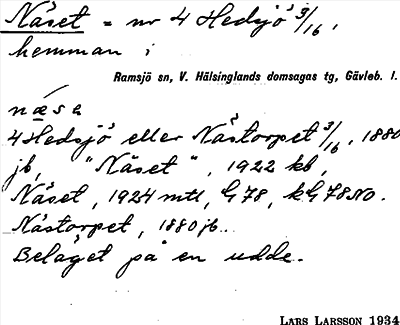 Näset = nr 4 Hedsjö 3/16,
hemman i
Ramsjö sn, V. Hälsinglands domsagas tg, Gävleb. l.
næsa
4 Hedsjö eller Nästorpet 3/16, 1880
jb, "Näset", 1922 kb,
Näset, 1924 mtl, G 78, kG 78 NO.
Nästorpet, 1880 jb..
Beläget på en udde.
LARS LARSSON 1934